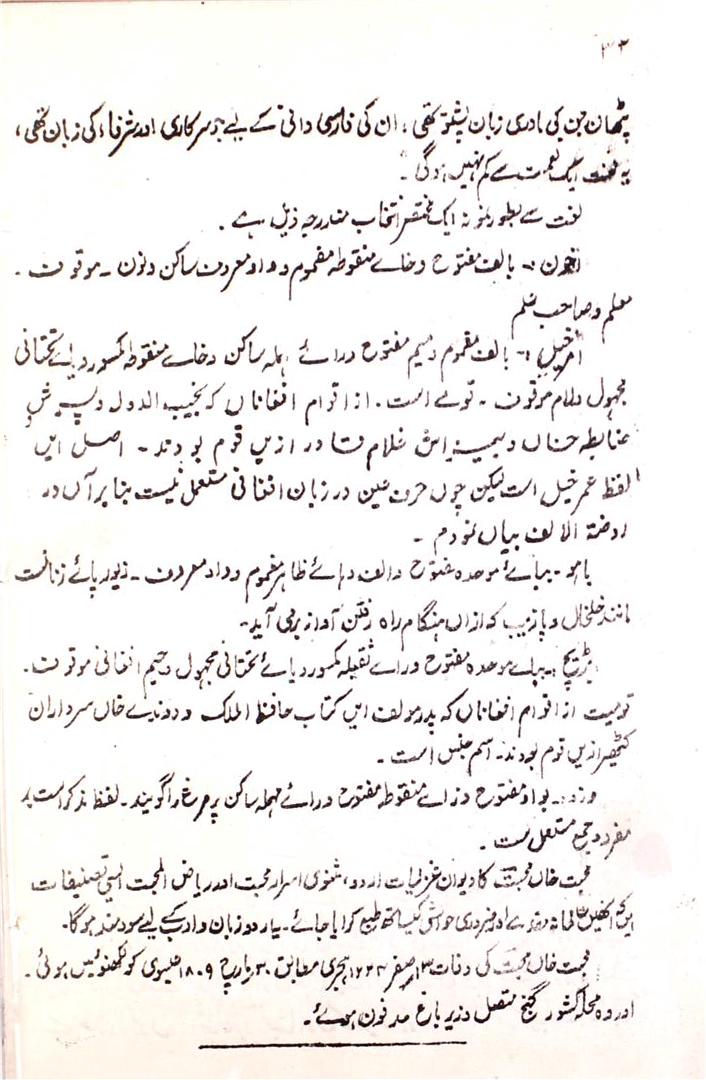 ۳۲
پٹھان جن کی مادری زبان پشتو تھی، ان کی فارسی دانی کے لیے جو سرکاری اور شرفاء کی زبان تھی،
یہ لغت ایک نعمت سے کم نہیں ہوگی۔
لغت سے بطور نمونہ ایک مختصر انتخاب مندرجہ ذیل ہے۔
اخون :۔ بالف مفتوح و خائے منقوطہ مضموم و واو معروف ساکن و نون ۔ موقوف ۔
معلم و صاحب علم
امرخیل :۔ بالف مضموم و میم مفتوح و رائے مہملہ ساکن و خائے منقوطہ مکسور و یائے تحتانی
مجہول و لام موقوف ۔ قومے است ۔ از اقوام افغاناں کہ نجیب الدولہ و پسرش
ضابطہ خاں و نبیرہ اش غلام قادر ازیں قوم بودند ۔ اصل ایں
لفظ عمر خیل است لیکن چوں حرف عین در زبان افغانی مستعمل نیست بنا بر آں در
روضۃ الالف بیاں نمودم ۔
باہو ۔ ببائے موحدہ مفتوح و الف و ہائے ظاہر مضموم و واو معروف ۔ زیور پائے زنانست
مانند خلخال و پازیب کہ ازاں ہنگام راہ رفتن آواز برمی آید۔
بڑیچ :۔ ببائے موحدہ مفتوح و رائے ثقیلہ مکسور و یائے تحتانی مجہول و جیم افغانی موقوف ۔
قومیست از اقوام افغاناں کہ پدر مولف ایں کتاب حافظ الملک و دوندے خاں سرداران
کٹھیر ازیں قوم بودند۔ اسم جنس است ۔
وزر۔ بواو مفتوح و زائے منقوطہ مفتوح و رائے مہملہ ساکن پر مرغ را گویند۔ لفظ مذکر است بر
مفرد و جمع مستعمل است ۔
محبت خاں محبت کا دیوان غزلیات اردو، مثنوی اسرار محبت اور ریاض المحبت ایسی تصنیفات
ہیں کہ انھیں مقدمے اور ضروری حواشی کیساتھ طبع کرایا جائے۔ یہ اردو زبان و ادب کے لیے سودمند ہوگا۔
محبت خاں محبت کی وفات ۱۳ صفر ۱۲۲۴ ہجری مطابق ۳۰ مارچ ۱۸۰۹ عیسوی کو لکھنؤ میں ہوئی ۔
اور وہ محلہ کشور گنج متصل وزیر باغ مدفون ہوئے۔